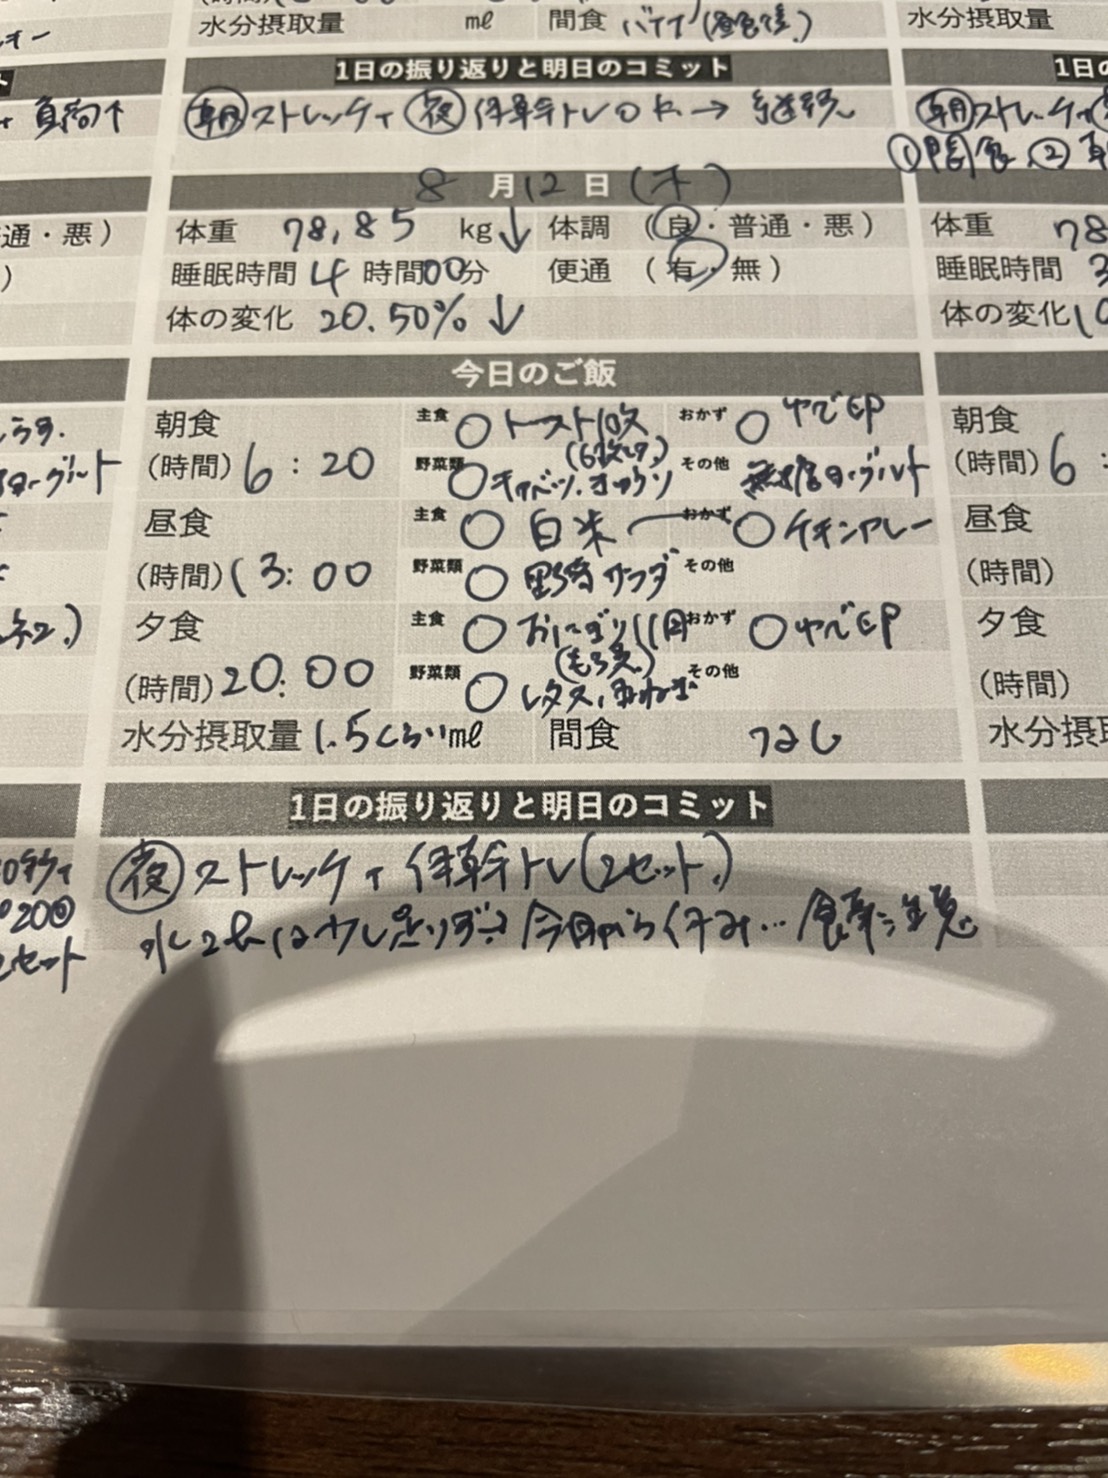 水分摂取量 ml 間食
水分摂取量
1日の振り返りと明日のコミット
朝 ストレッチ、夜 体幹トレOK → 継続
朝 ストレッチ
①間食、②
8月12日(木)
通・悪)
体重 78.85 kg↓ 体調 (良・普通・悪)
体重 78
睡眠時間 4時間00分 便通 (有・無)
睡眠時間 3
体の変化 20.50%↓
体の変化
今日のご飯
朝食 主食 ○ トースト1枚 おかず ○ ゆで卵
(6枚切)
(時間) 6:20 野菜類 ○ キャベツ、オクラ その他 無糖ヨーグルト
昼食 主食 ○ 白米 おかず ○ チキンカレー
(時間) 13:00 野菜類 ○ 野菜サラダ その他
夕食 主食 ○ おにぎり1個 おかず ○ ゆで卵
(もち麦)
(時間) 20:00 野菜類 ○ レタス、玉ねぎ その他
水分摂取量 1.5くらいml 間食 なし
朝食
(時間) 6:
昼食
(時間)
夕食
(時間)
水分摂取
1日の振り返りと明日のコミット
夜 ストレッチ、体幹トレ(2セット)
水2Lは少し足りず… 今日から休み… 食事に注意
20回
2セット